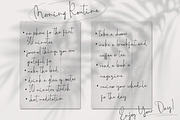 Morning Routine
no phone for the first
30 minutes
journal things you are
grateful for
make the bed
drink a glass of water
10 minutes stretch
short meditation
take a shower
make a breakfast and
coffee & tea
read a book &
magazine
review your schedule
for the day
Enjoy Your Day!